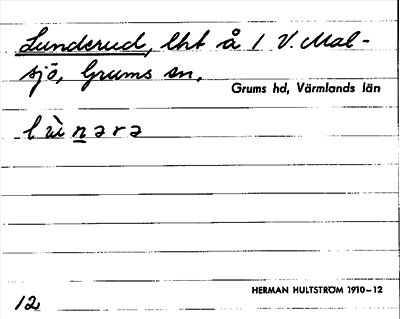 Lunderud, lht å 1 V. Mal-
sjö, Grums sn,
Grums hd, Värmlands län
lùnərə
HERMAN HULTSTRÖM 1910–12
12